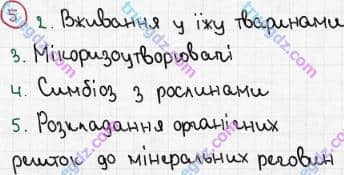 5 2. Вживання у їжу тваринами
3. Мікоризоутворювачі
4. Симбіоз з рослинами
5. Розкладання органічних
решток до мінеральних речовин